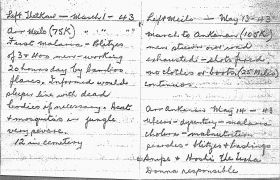 Left Thetkaw - March 1 - 43
Air Meils (75K) " " "
Fuast malaria - Blitzes
of 3 + 400 men - working
20 hours day by bamboo
flares. Informed would
sleeps line with dead
bodies if necessary. Heat
+ mosquitos in jungle
very severe.
12 in cemetery
Left Meils - May 13 - 43
march to Ankanan (105K)
men strain out and
exhausted - shots fired,
no clothes or boots (25 Miles)
continuous.
Arr Ankanan May 14 - 43
ulcers - dysentery - malaria
cholera - malnutrition
parades - blitzes + bashings
Donna responsible